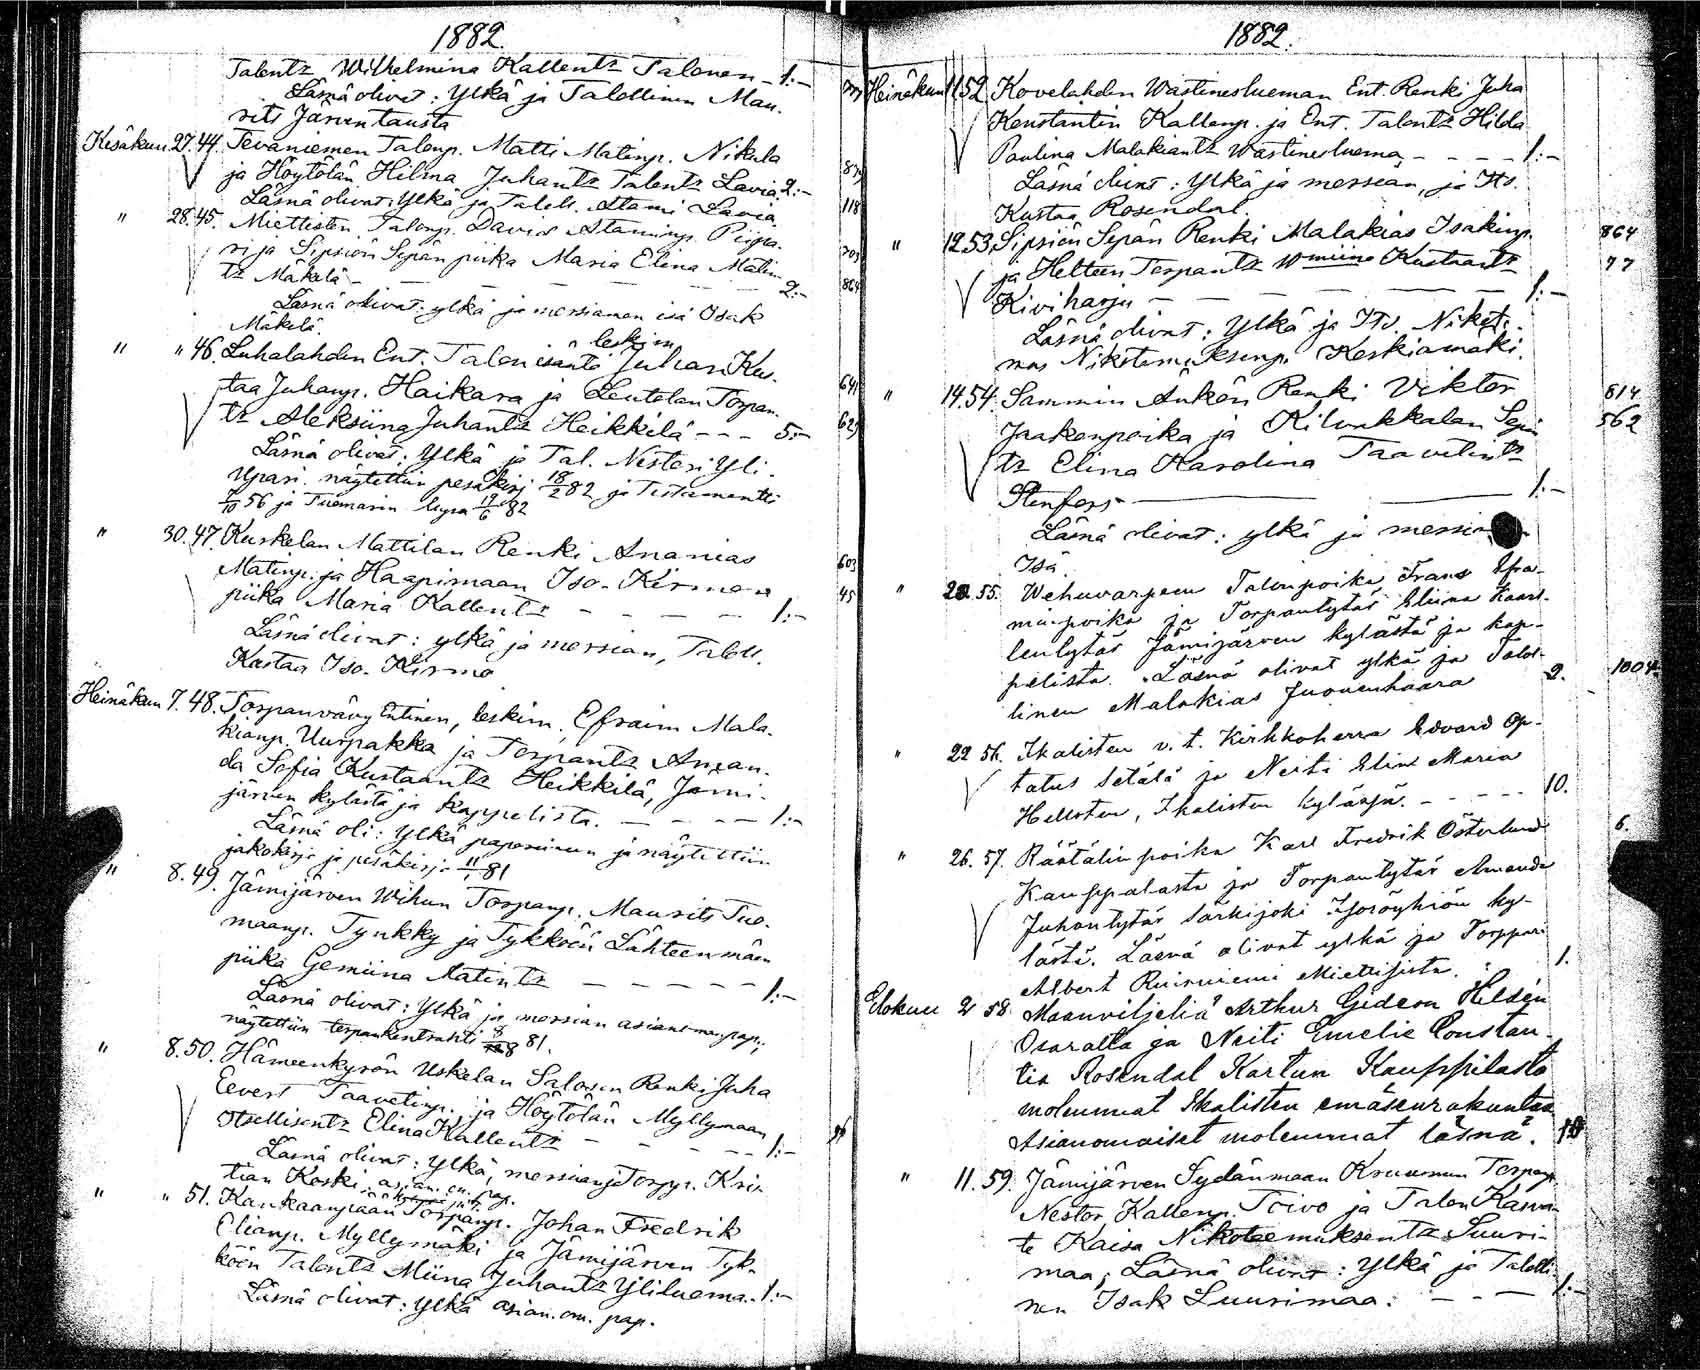 1882.
Talentz Wilhelmina Kallentz Talonen - 1:-
Läsnä olivat: Ylkä ja Talollinen Mau-
rits Järventausta
Kesäkuu 27. 44. Teväniemen Talonp. Matti Matinp. Nikula
ja Höytölän Hilma Juhantz Talentz Lavia 2:-
Läsnä olivat: Ylkä ja Taloll. Atami Lavia
" 28. 45. Miettisten Talonp. David Ataminp.
ri ja Sipsiön Sepän piika Maria Elina Matin
tz Mäkelä - - - - - 2:-
Läsnä olivat: ylkä ja morsiamen isä Isak
Mäkelä.
" " 46. Luhalahden Ent. Talon isäntä leskim. Juhan Kus-
taa Juhanp. Haikara ja Leutolan Torpan-
tz Aleksiina Juhantz Heikkilä - - - 5:-
Läsnä olivat: Ylkä ja Tal. Nestori Yli-
Upari. näytettiin pesäkirj 18/2 82 ja Testamentti
7/10 56 ja Tuomarin lupa 19/6 82
" 30. 47. Kuskelan Mattilan Renki Ananias
Matinp. ja Haapimaan Iso-Kirmon
piika Maria Kallentz - - - - 1:-
Läsnä olivat: ylkä ja morsian, Taloll.
Kustaa Iso-Kirmo
Heinäkuu 7. 48. Torpanvävy Entinen, leskim. Efraim Mala-
kianp. Uurpakka ja Torpantz Aman-
da Sofia Kustaantz Heikkilä, Jämi-
järven kylästä ja kappelista. - - - 1:-
Läsnä oli: Ylkä papereineen ja näytettiin
jakokirja ja pesäkirja 11/1 81
" 8. 49. Jämijärven Wihun Torpanp. Maurits Tuo-
maanp. Tynkky ja Tykköön Lähteenmäen
piika Gemiina Matintz - - - - - 1:-
Läsnä olivat: Ylkä ja morsian asianom. pap;
näytettiin torpankontrahti 8/8 81.
" 8. 50. Hämeenkyrön Uskelan Salosen Renki Juha
Eevert Taavetinp. ja Höytölän Myllymaan
Itsellisentz Elina Kallentz - - - - - 1:-
Läsnä olivat: Ylkä, morsian ja Torpp. Kris
tian Koski. asian. om. pap.
" " 51. Kankaanpään Torpanp. Johan Fredrik
Elianp. Myllymäki ja Jämijärven Tyk-
köön Talentz Miina Juhantz Yliluoma. 1:-
Läsnä olivat: Ylkä asian. om. pap.
879
118
703
864
641
629
603
45
1882.
Heinäkuu 11 52. Kovelahden Wästinesluoman Ent. Renki Juha
Konstantin Kallenp. ja Ent. Talontz Hilda
Paulina Malakiantz Wästinesluoma, - - - - 1:-
Läsnä olivat: Ylkä ja morsian, ja Its.
Kustaa Rosendal.
" 12 53. Sipsiön Sepän Renki Malakias Isakinp. 864
ja Helteen Torpantz Wmiina Kustaantz 77
Kiviharju - - - - - - 1:-
Läsnä olivat: Ylkä ja Its. Nikote-
mus Nikotemuksenp. Koskiamäki.
" 14. 54. Sammin Ankön Renki Viktor 814
Jaakonpoika ja Kilvakkalan Sepän 562
tz Elina Karolina Taavetintz
Stenfors - - 1:-
Läsnä olivat: ylkä ja morsia
Isä.
" 20. 55. Wehuvarpeen Talonpoika Frans Efra-
min poika ja Torpantytär Eliina Kaarl-
lentytär Jämijärven kylästä ja kap-
pelista. Läsnä olivat ylkä ja Talol-
linen Malakias Juonenhaara 2. 1004.
" 22 56. Ikalisten v. t. Kirkkoherra Edvard Op-
tatus Setälä ja Neiti Elin Maria
Hellsten, Ikalisten kylästä. - - - - - 10.
" 26. 57. Räätälin poika Karl Fredrik Österlund 6.
Kauppalasta ja Torpantytär Amanda
Juhontytär Särkijoki Isoröyhiön ky-
lästä. Läsnä olivat ylkä ja Torppari
Albert Ruisniemi Miettisistä. 1.
Elokuu 2 58. Maanviljeliä Arthur Gideon Hildén
Osaralta ja Neiti Emelie Constan-
tia Rosendal Kartun Kauppilasta
molemmat Ikalisten emäseurakuntaa
Asianomaiset molemmat läsnä. 10
" 11. 59. Jämijärven Sydänmaan Kruunun Torpanp.
Nestor Kallenp. Toivo ja Talon Kasva-
te Kaisa Nikoteemuksentz Suuri-
maa; Läsnä olivat: Ylkä ja Talolli-
nen Isak Luurimaa. - - - 1:-